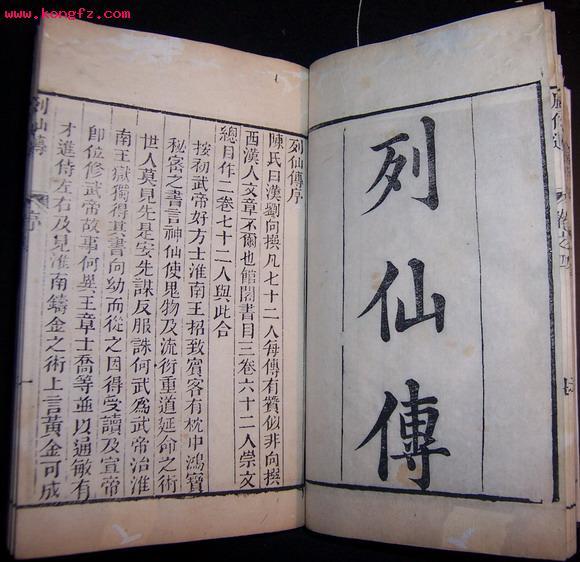 www.kongfz.com
列仙傳
列仙傳序
陳氏曰漢劉向撰凡七十二人每傳有贊似非向撰
西漢人文章不爾也館閣書目三卷六十二人崇文
總目作二卷七十二人與此合
按初武帝好方士淮南王招致賓客有枕中鴻寶
秘密之書言神仙使鬼物及流術重道延命之術
世人莫見先是安先謀反服誅何武爲武帝治淮
南王獄獨得其書向幼而從之因得受讀及宣帝
即位修武帝故事何異王章士喬等並以通敏有
才進侍左右及見淮南鑄金之術上言黃金可成
列仙傳 序 一